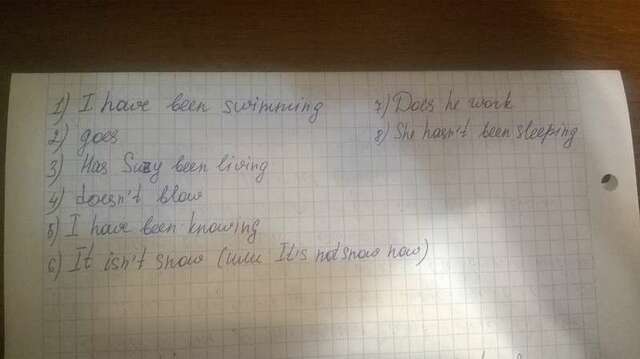 1) I have been swimming
2) goes
3) Has Suzy been living
4) doesn't blow
5) I have been knowing
6) It isn't snow (или It is not snow now)
7) Does he work
8) She hasn't been sleeping